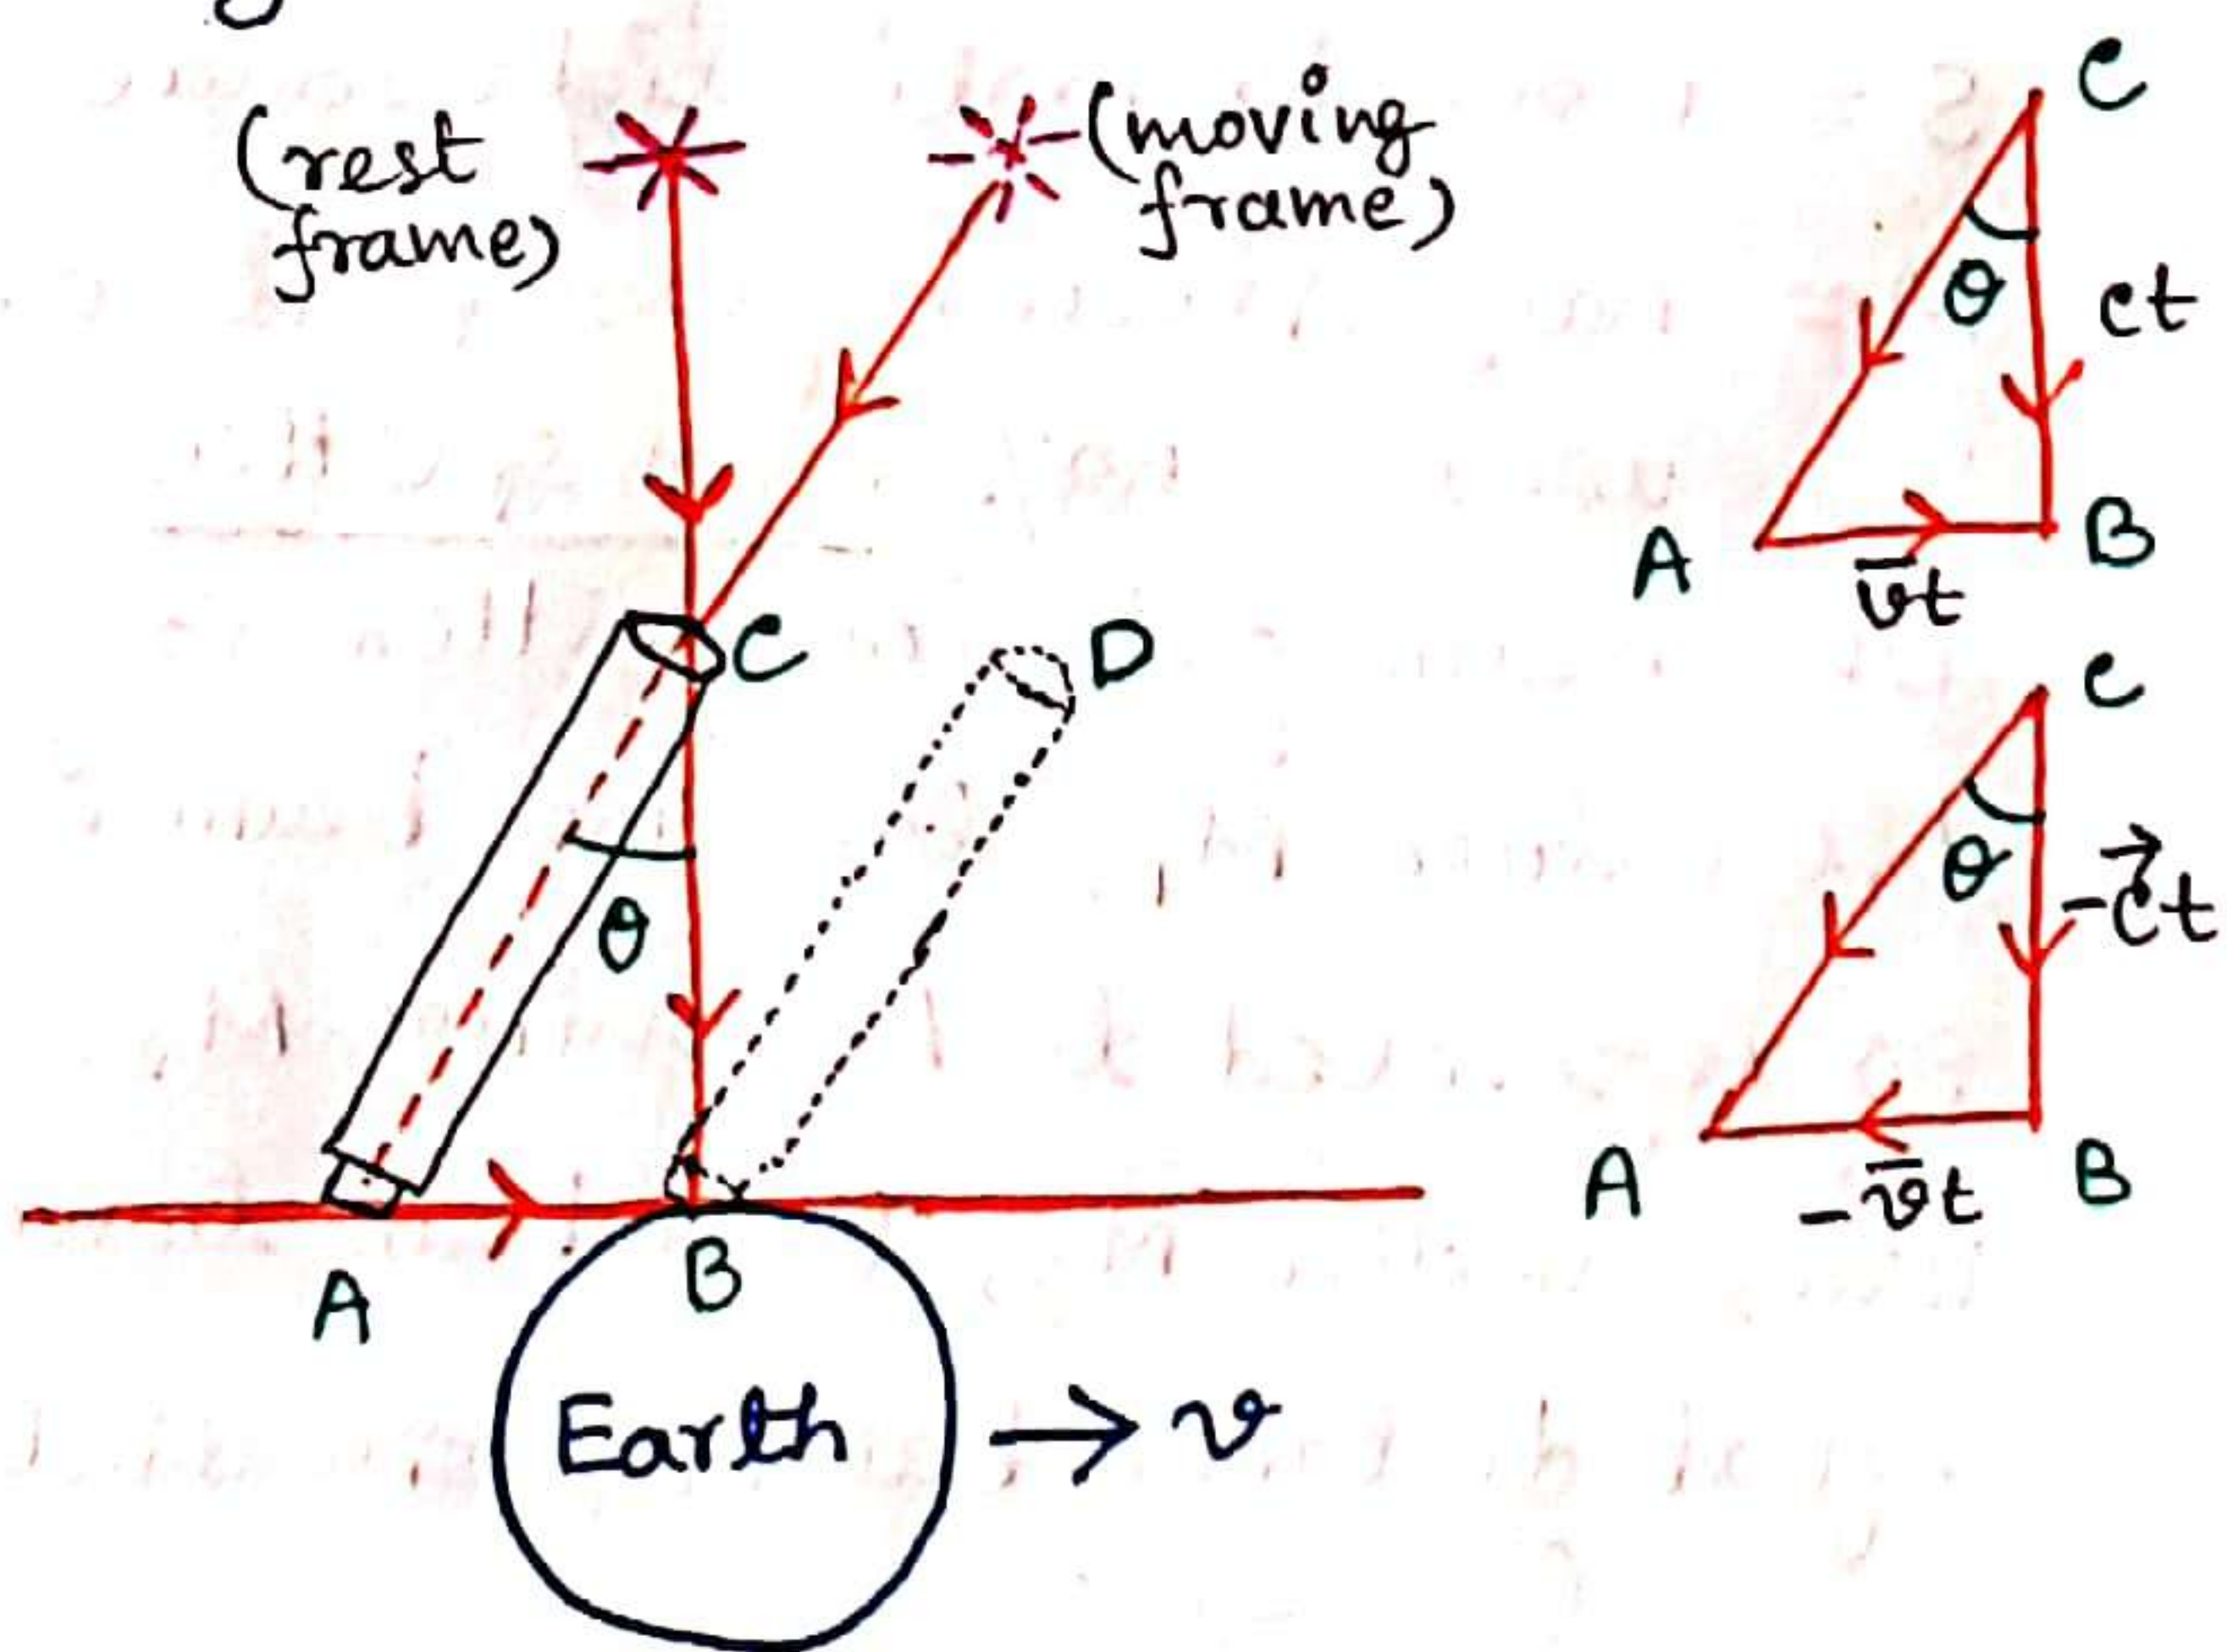 (rest
frame)
(moving
frame)
C
D
θ
A
B
Earth → v
C
θ
ct
A
B
v̅t
C
θ
-c⃗t
A
B
-v̅t